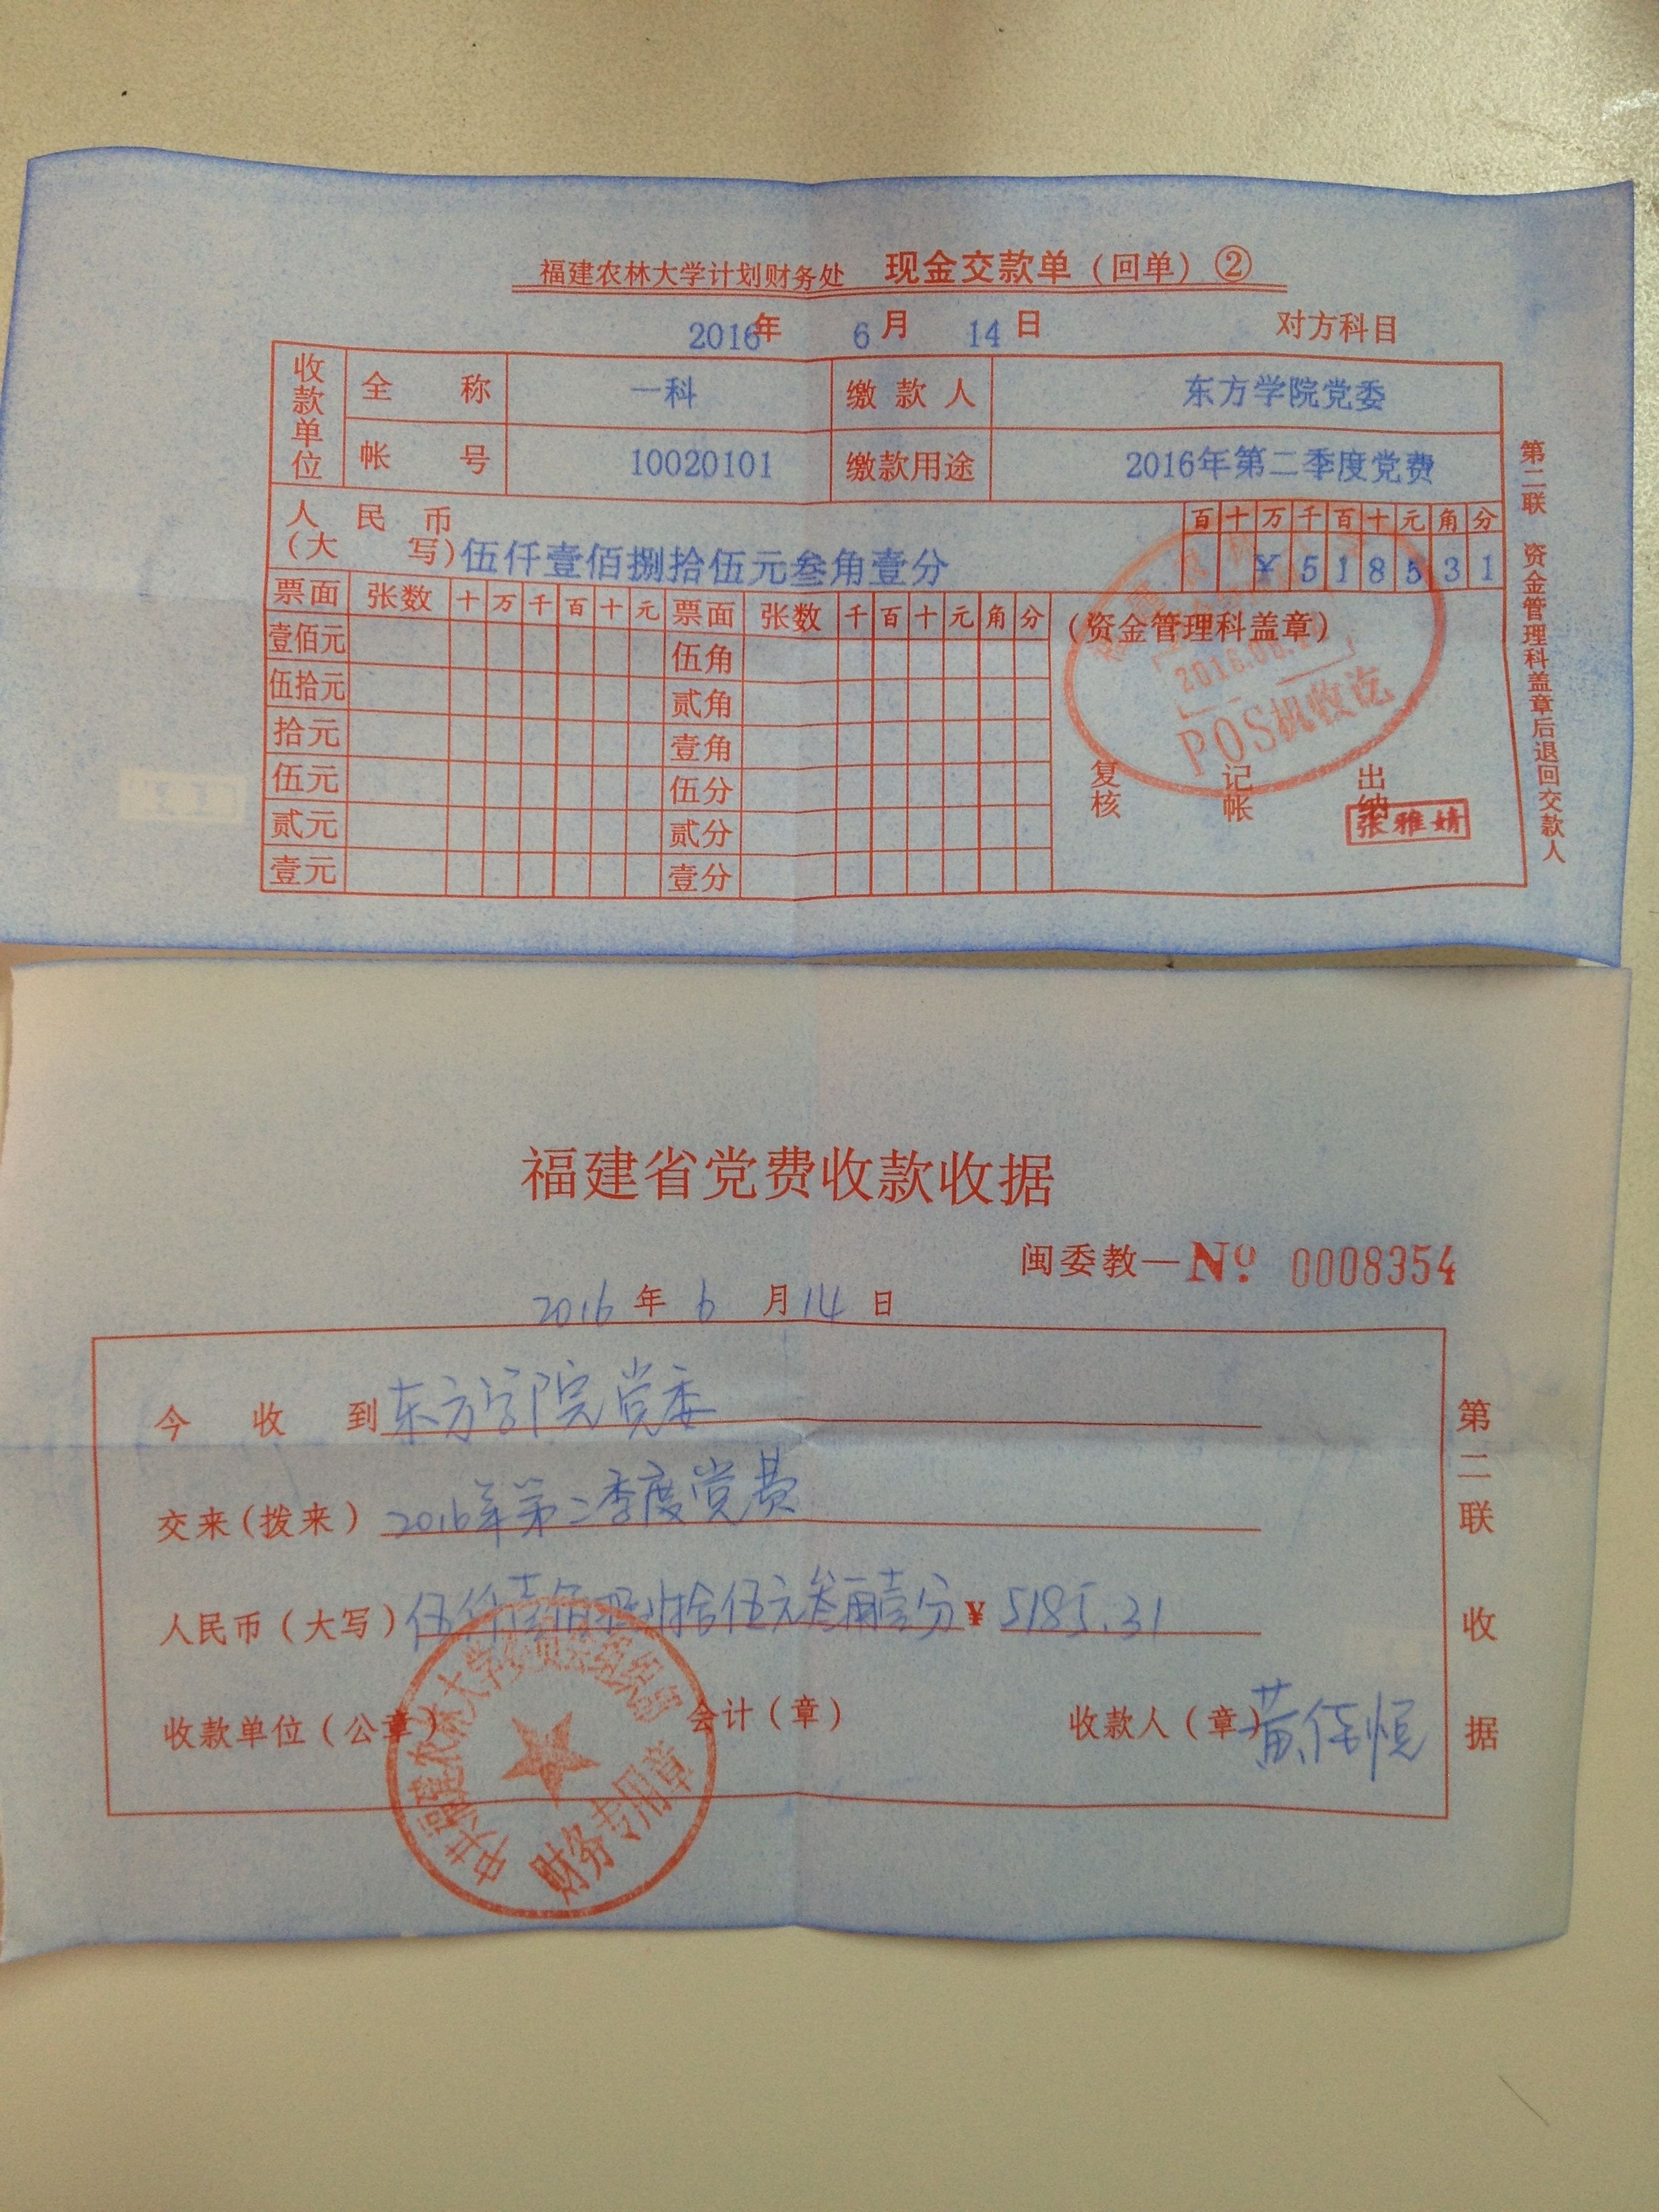 福建农林大学计划财务处 现金交款单（回单）②
2016年 6月 14日 对方科目
收款单位 全称 一科 缴款人 东方学院党委
帐号 10020101 缴款用途 2016年第二季度党费
人民币（大写） 伍仟壹佰捌拾伍元叁角壹分 百 十 万 千 百 十 元 角 分
¥ 5 1 8 5 3 1
票面 张数 十 万 千 百 十 元 票面 张数 千 百 十 元 角 分 （资金管理科盖章）
壹佰元 伍角
伍拾元 贰角
拾元 壹角
伍元 伍分
贰元 贰分
壹元 壹分
POS机收讫
复核 记帐 出纳
张雅婧
第二联 资金管理科盖章后退回交款人
福建省党费收款收据
闽委教—№ 0008354
2016年6月14日
今收到 东方学院党委
交来（拨来） 2016年第二季度党费
人民币（大写） 伍仟壹佰捌拾伍元叁角壹分 ¥ 5185.31
收款单位（公章） 会计（章） 收款人（章） 黄
中共福建农林大学委员会组织部
财务专用章
第二联 收据